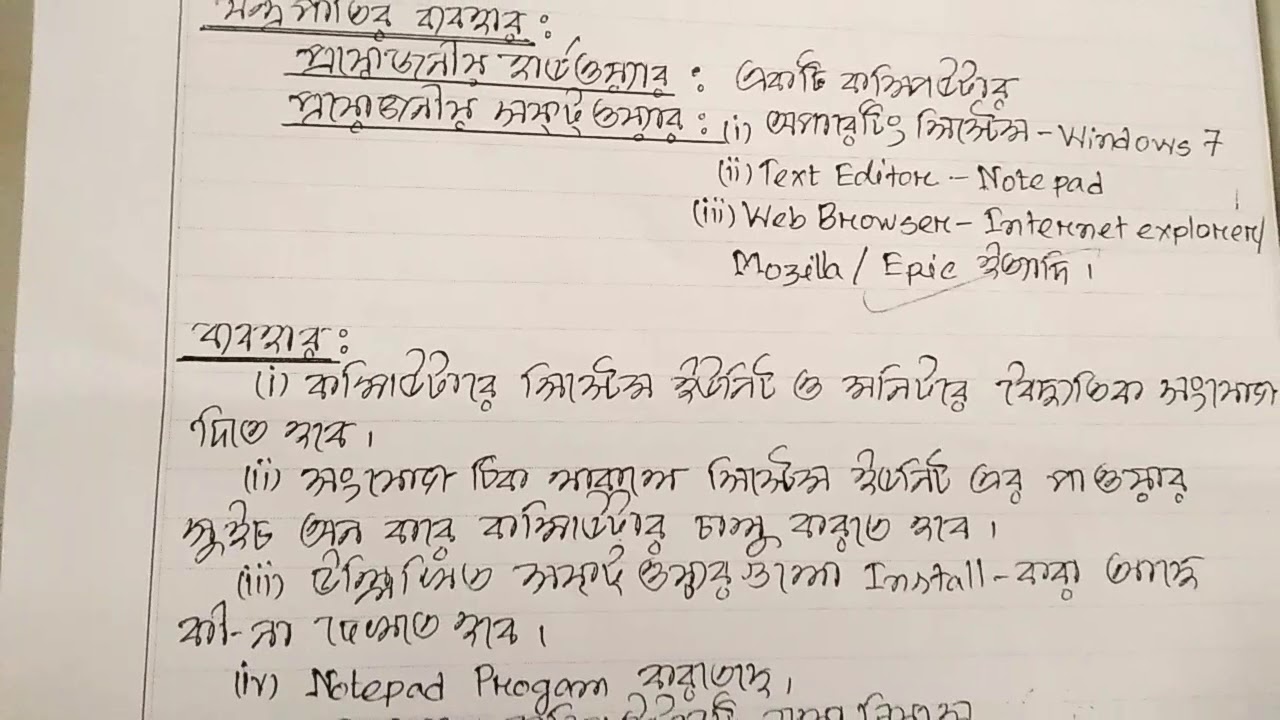 যন্ত্রপাতির ব্যবহার :
প্রয়োজনীয় হার্ডওয়্যার : একটি কম্পিউটার
প্রয়োজনীয় সফ্ট্ওয়্যার : (i) অপারেটিং সিস্টেম - Windows 7
(ii) Text Editor - Notepad
(iii) Web Browser - Internet explorer/
Mozilla / Epic ইত্যাদি।
ব্যবহার :
(i) কম্পিউটারে সিস্টেম ইউনিট ও মনিটরে বৈদ্যুতিক সংযোগ
দিতে হবে।
(ii) সংযোগ ঠিক থাকলে সিস্টেম ইউনিট এর পাওয়ার
সুইচ অন করে কম্পিউটার চালু করতে হবে।
(iii) উল্লিখিত সফ্ট্ওয়্যার গুলো Install - করা আছে
কী-না দেখতে হবে।
(iv) Notepad Progam করতেছে।